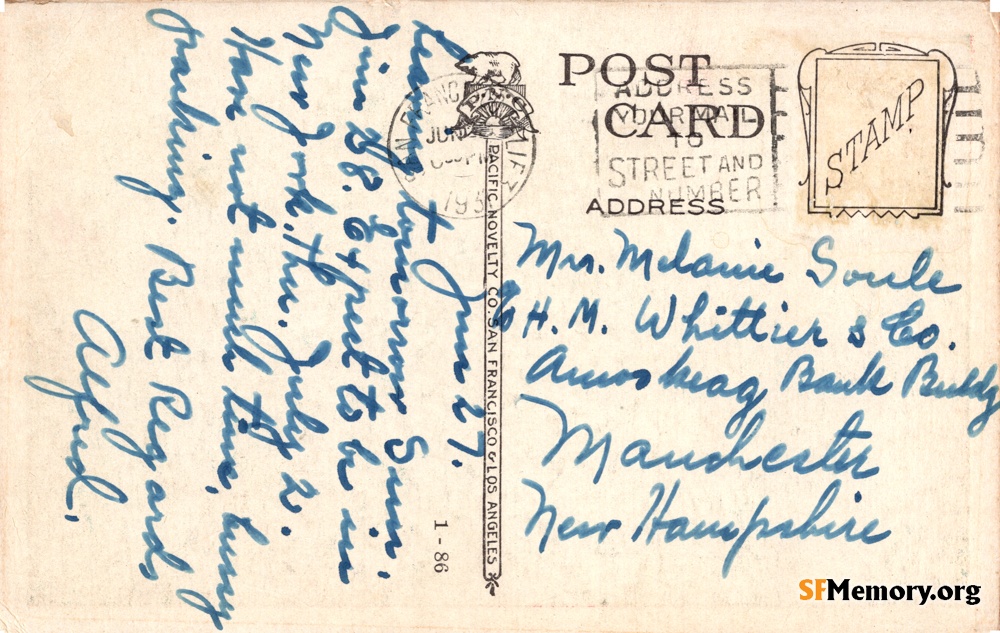 June 27.
Leaving tomorrow Sun.
June 28. Expect to be in
New York. Thu. July 2.
Have not much time, busy
packing. Best Regards
Alfred.
POST
CARD
ADDRESS
YOUR MAIL
TO
STREET AND
NUMBER
STAMP
ADDRESS
JUN
193
P.N.C
PACIFIC NOVELTY CO. SAN FRANCISCO & LOS ANGELES
1-86
Mrs. Melanie Soule
% H. M. Whittier & Co.
Amoskeag Bank Buldg
Manchester
New Hampshire
SFMemory.org